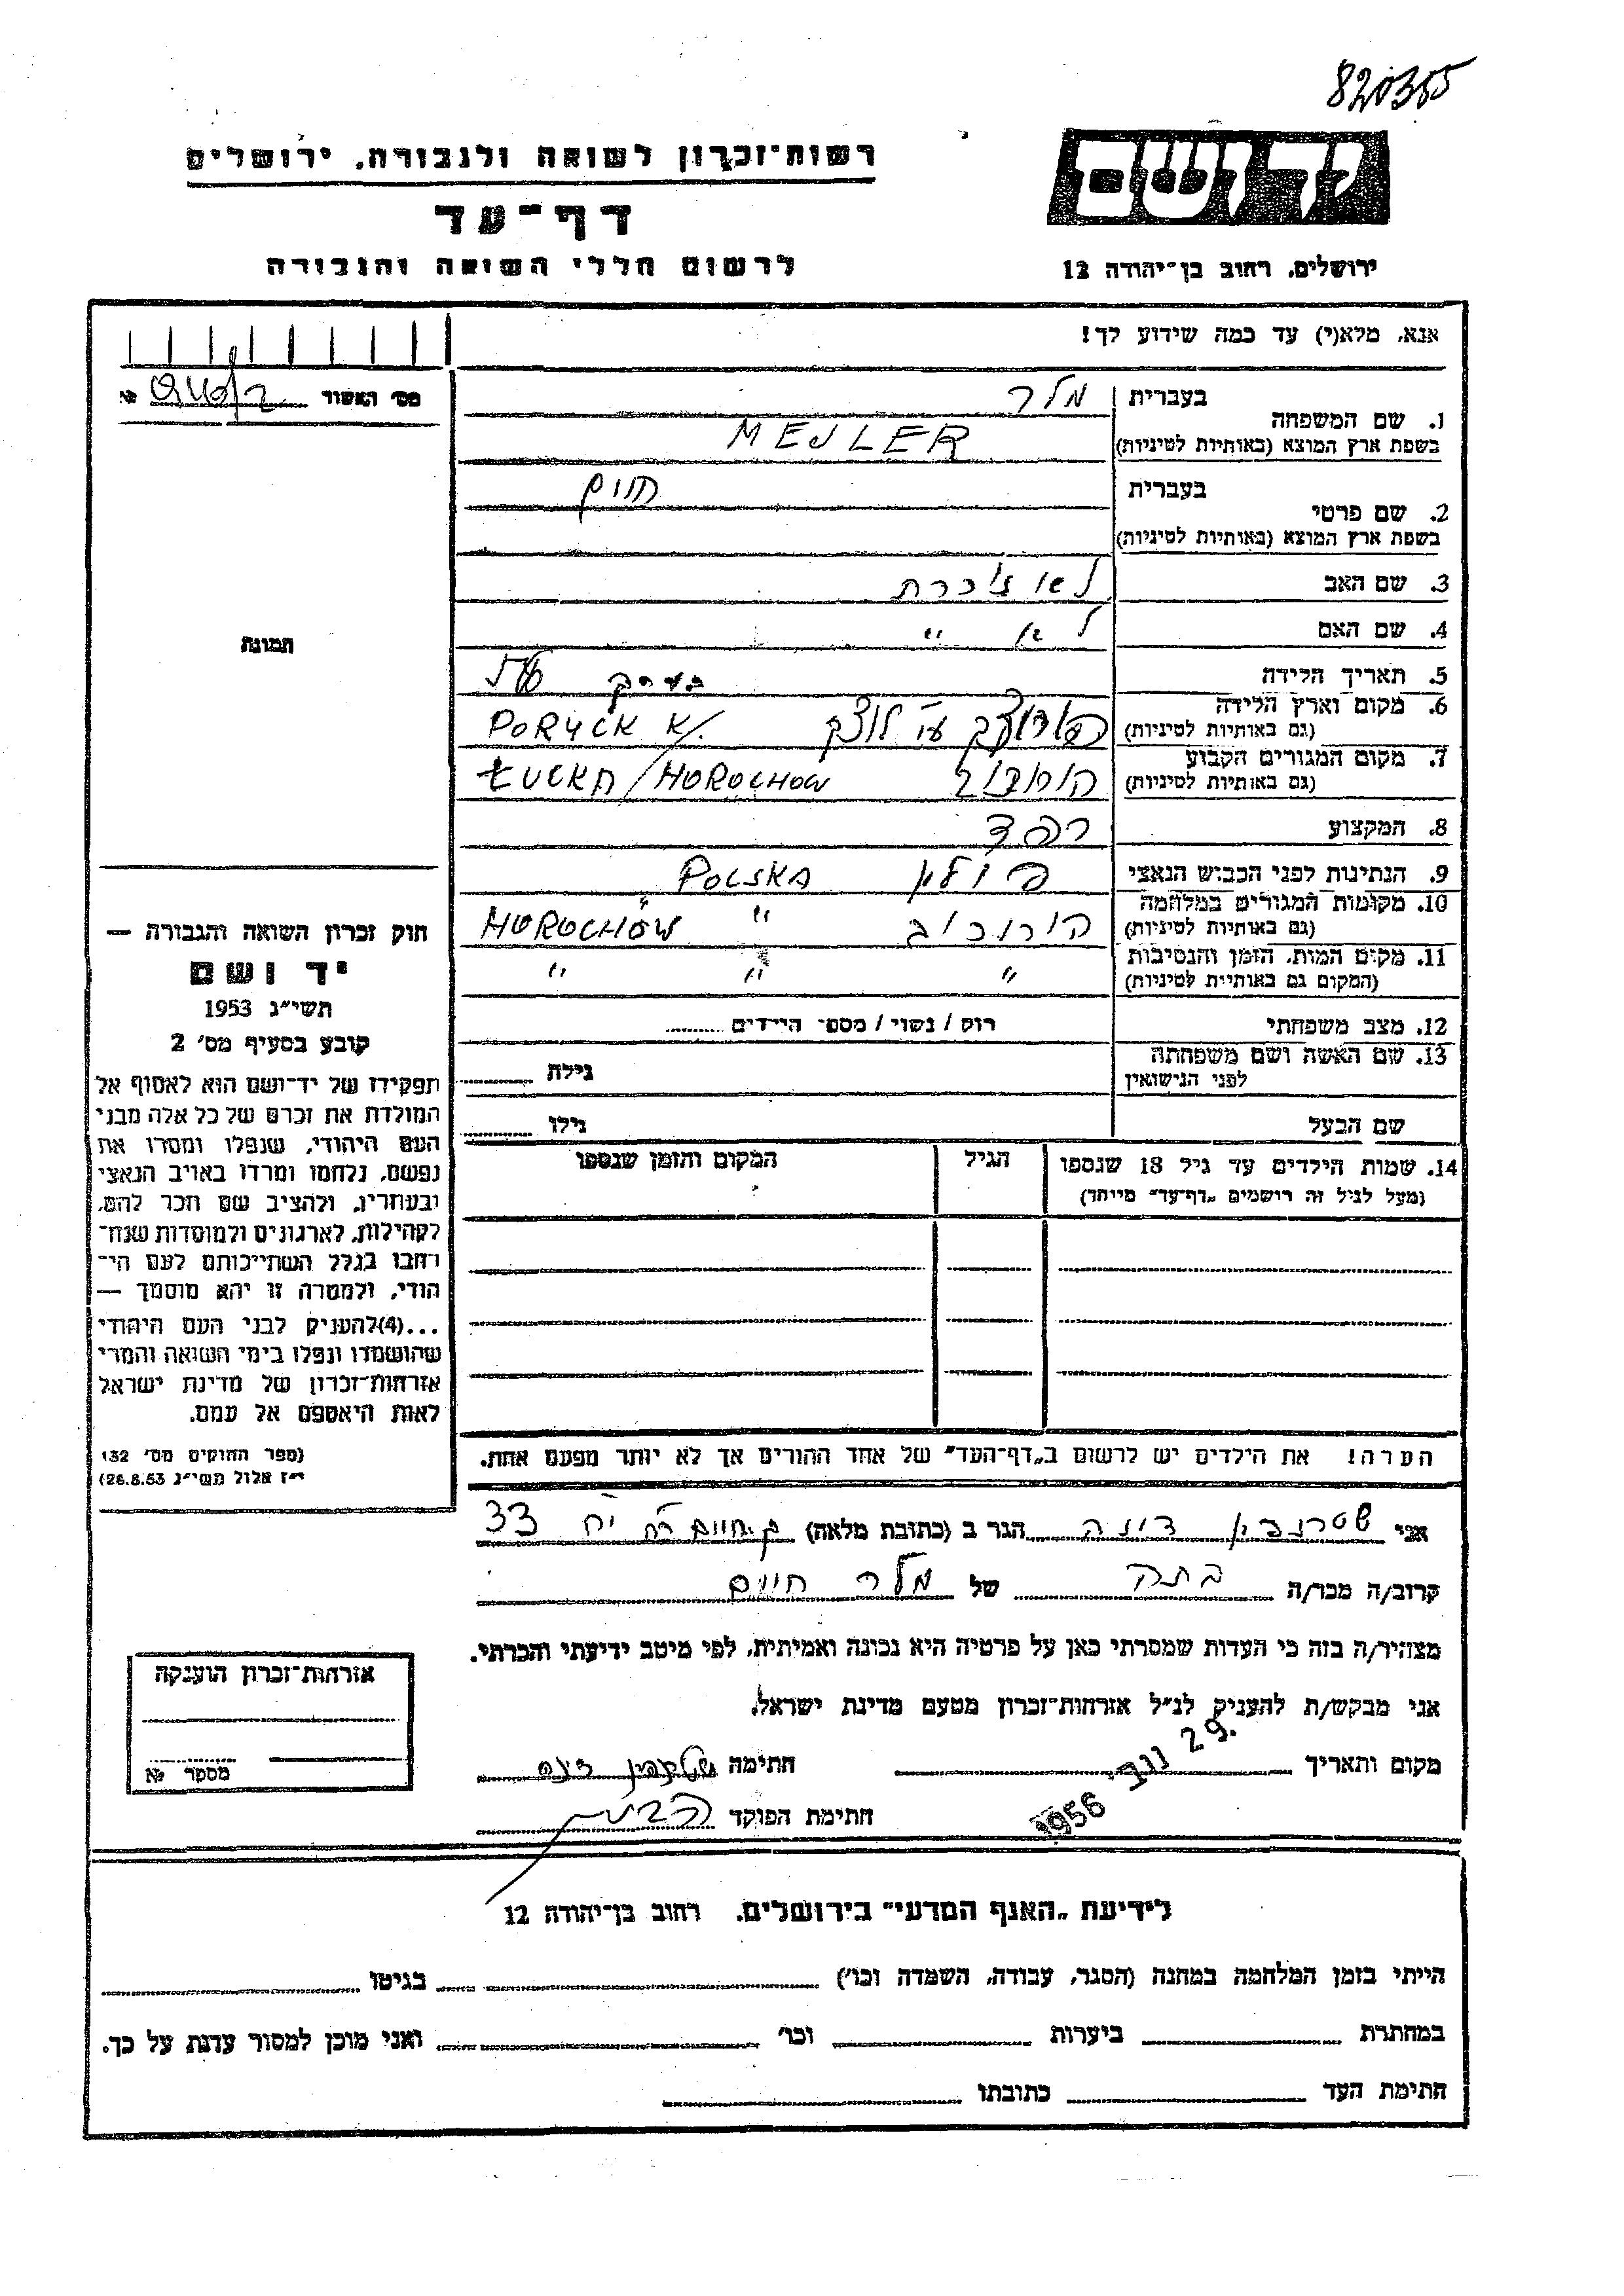 820365
יד ושם
רשות־זכרון לשואה ולגבורה, ירושלים
דף־עד
לרשום חללי השואה והגבורה
ירושלים, רחוב בן־יהודה 12
אנא, מלא(י) עד כמה שידוע לך!
מס' האשור №
1. שם המשפחה בעברית מלר
בשפת ארץ המוצא (באותיות לטיניות) MEJLER
2. שם פרטי בעברית חיים
בשפת ארץ המוצא (באותיות לטיניות)
3. שם האב לא זוכרת
4. שם האם לא "
5. תאריך הלידה בערך
6. מקום וארץ הלידה
(גם באותיות לטיניות) ע"י לוצק PORYCK K/.
7. מקום המגורים הקבוע
(גם באותיות לטיניות) ŁUCKA/HOROCHOW
8. המקצוע רפד
9. הנתינות לפני הכבוש הנאצי פולין POLSKA
10. מקומות המגורים במלחמה
(גם באותיות לטיניות) הורוכוב " HOROCHÓW
11. מקום המות, הזמן והנסיבות
(המקום גם באותיות לטיניות) " " "
12. מצב משפחתי רוק / נשוי / מספ' הילדים
13. שם האשה ושם משפחתה
לפני הנישואין גילה
שם הבעל גילו
14. שמות הילדים עד גיל 18 שנספו הגיל המקום והזמן שנספו
(מעל לגיל זה רושמים „דף־עד" מייוחד)
הערה! את הילדים יש לרשום ב„דף־העד" של אחד ההורים אך לא יותר מפעם אחת.
תמונה
חוק זכרון השואה והגבורה —
יד ושם
תשי"ג 1953
קובע בסעיף מס' 2
תפקידו של יד־ושם הוא לאסוף אל
המולדת את זכרם של כל אלה מבני
העם היהודי, שנפלו ומסרו את
נפשם, נלחמו ומרדו באויב הנאצי
ובעוזריו, ולהציב שם וזכר להם,
לקהילות, לארגונים ולמוסדות שנח־
רחבו בגלל השתייכותם לעם הי־
הודי, ולמטרה זו יהא מוסמך —
...(4)להעניק לבני העם היהודי
שהושמדו ונפלו בימי השואה והמרי
אזרחות־זכרון של מדינת ישראל
לאות היאספם אל עמם.
(ספר החוקים מס' 132
י"ז אלול תשי"ג 28.8.53)
אני שטרנפין דונה הגר ב (כתובת מלאה) ק. חיים 33
קרוב/ה מכר/ה של מלר חיים
מצהיר/ה בזה כי העדות שמסרתי כאן על פרטיה היא נכונה ואמיתית, לפי מיטב ידיעתי והכרתי.
אני מבקש/ת להעניק לנ"ל אזרחות־זכרון מטעם מדינת ישראל.
מקום ותאריך 29. נוב. 1956 חתימה
חתימת הפוקד
אזרחות־זכרון הוענקה
מספר №
לידיעת „האגף המדעי" בירושלים, רחוב בן־יהודה 12
הייתי בזמן המלחמה במחנה (הסגר, עבודה, השמדה וכו') בגיטו
במחתרת ביערות וכו' ואני מוכן למסור עדות על כך.
חתימת העד כתובתו